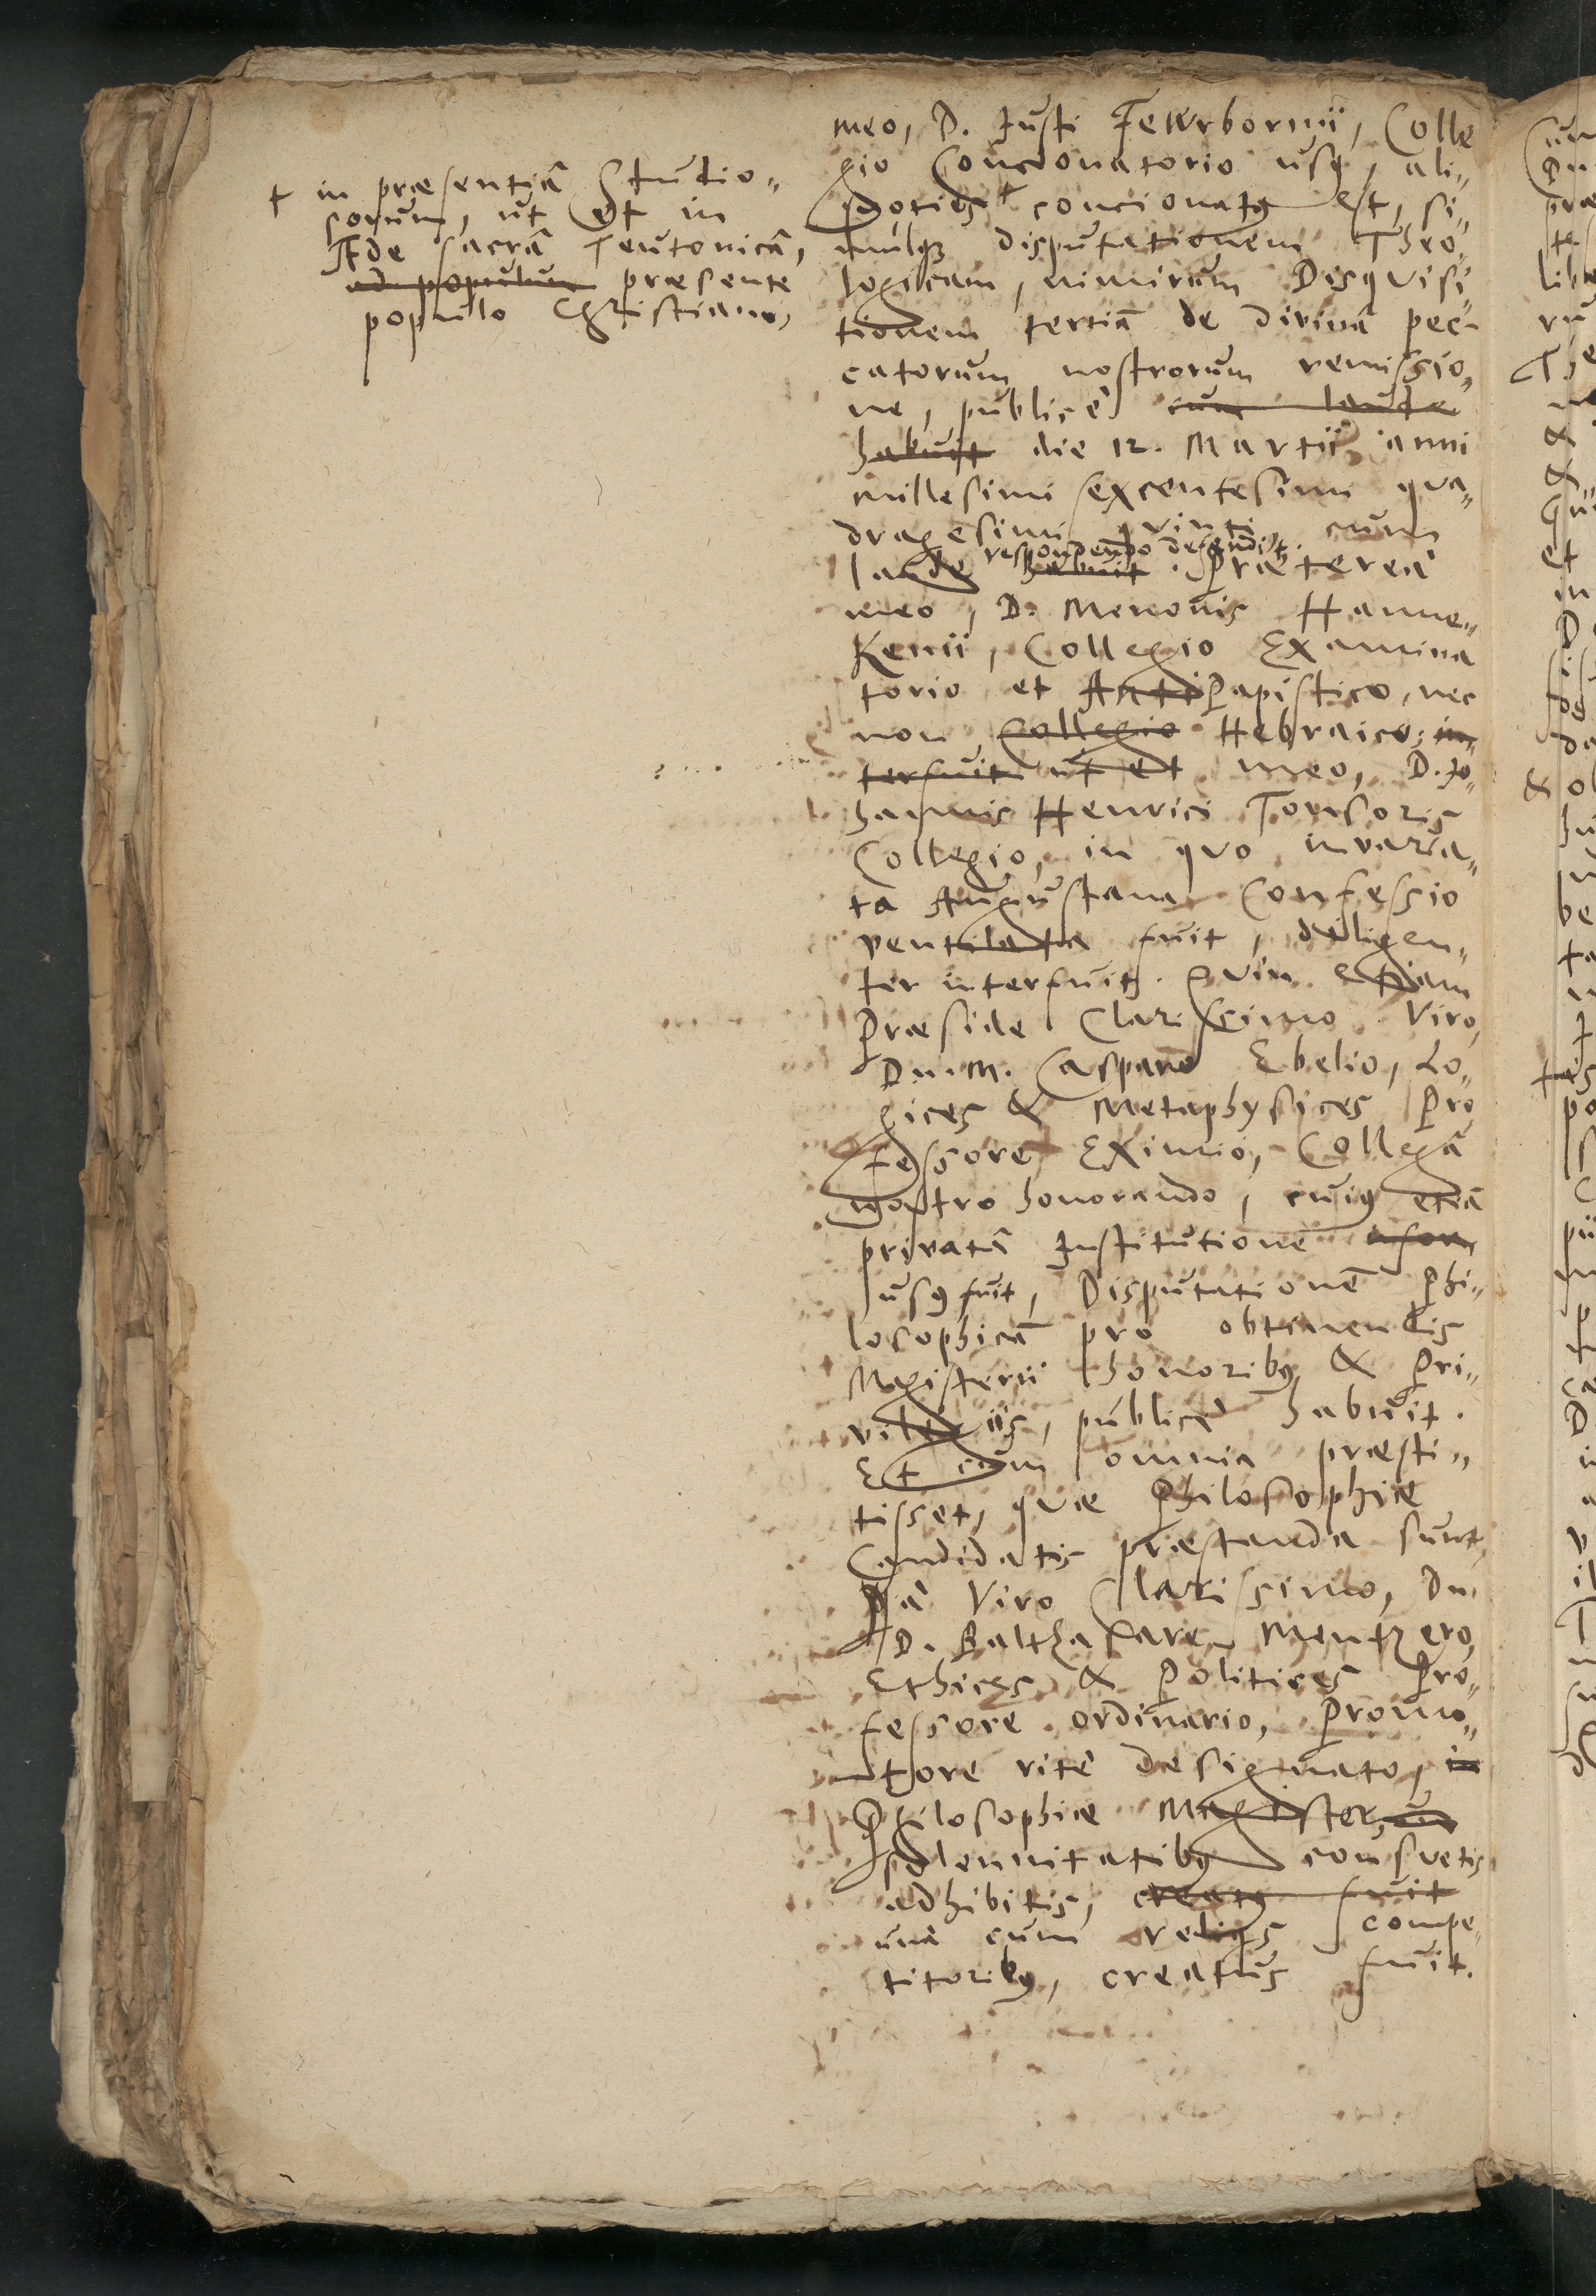 † in præsentiâ Studio-
sorum, ut et in
Æde sacrâ Teutonicâ,
ad populum præsente
populo Christiano,
meo, D. Justi Fewrbornii, Colle
gio Concionatorio usq, ali-
quoties † concionatq est, si-
mulq disputationem Theo-
logicam, nimirum Disqvisi-
tionem tertiâ de divinâ pec-
catorum nostrorum remissio-
ne, publicè cum laude
habuit die 12. Martii anni
millesimi sexcentesimi qva-
dragesimi qvinti cum
respondendo defendit.
laude habuit. Prætereà
meo, D. Menonis Hanne-
Kenii, Collegio Examina
torio et AntiPapistico, nec
non Collegio Hebraico, in-
terfuit ut et meo, D. Jo-
hannis Henrici Tonsoris
Collegio, in qvo invaria-
ta Augustana Confessio
ventilata fuit, diligen-
ter interfuit. Qvin etiam
Præside Clarissimo Viro,
Dn. M. Casparo Ebelio, Lo-
gices & Metaphysices Pro
fessore Eximio, Collegâ
nostro honorando, cuiq etiâ
privatâ Institutionē
usq fuit, Disputationē Phi-
losophicâ pro obtinendis
Magisterii honoribq & Pri-
vilegiis, publicè habuit.
Et cùm omnia præsti-
tisset, qvæ Philosophiæ
Candidatis præstanda sunt,
à Viro Clarissimo, Dn.
D. Balthasare Mentzero,
Ethices & Politices Pro-
fessore ordinario, Promo-
tore ritè designato, in
Philosophiæ Magister,
solennitatibq consvetis
adhibitis, creatq fuit
unà cum reliqs compe-
titoribq, creatus fuit.